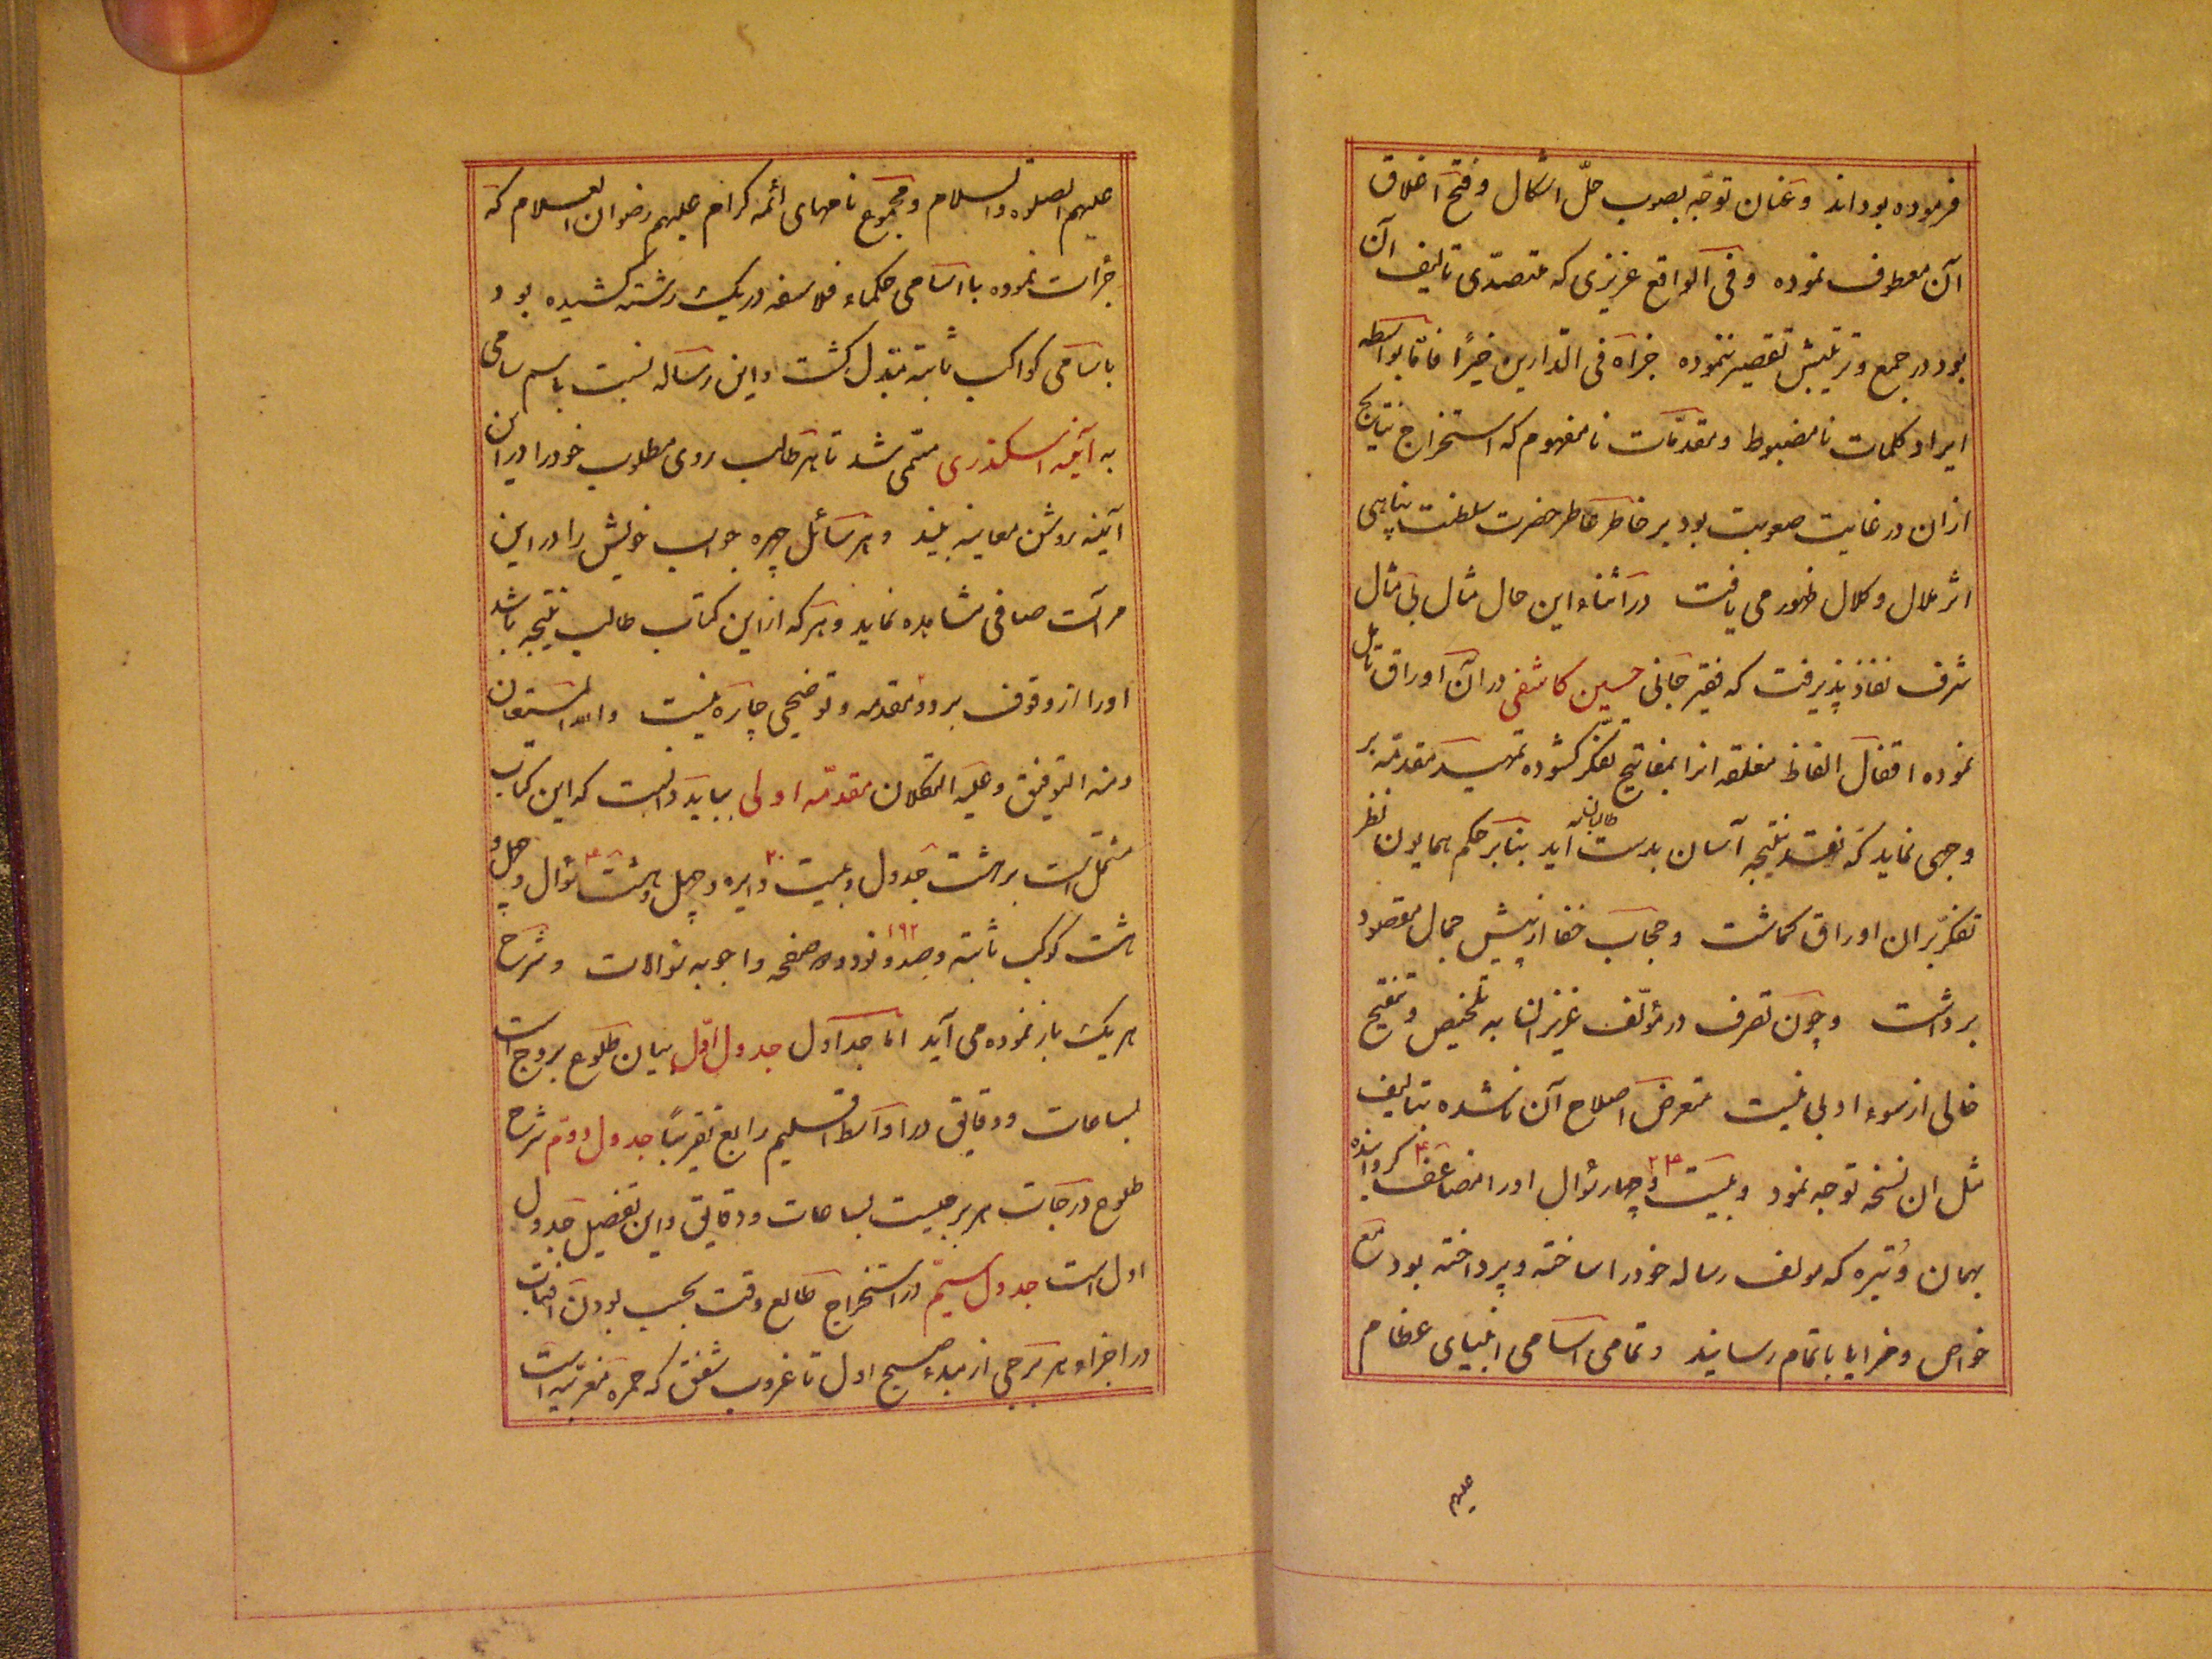 فرموده بوداند وعنان توجّه بصوب حلّ اشکال وفتح اغلاق
آن معطوف نموده وفی الواقع عزیزی که متصدّی تالیف آن
بود در جمع وترتیبش تقصیر ننموده جزاه فی الدّارین خیرًا فامّا بواسطه
ایراد کلمات نامضبوط ومقدّمات نامفهوم که استخراج نتایج
ازان در غایت صعوبت بود بر خاطر عاطر حضرت سلطنت پناهی
اثر ملال وکلال ظهور می یافت در اثناء این حال مثال بی مثال
شرف نفاذ پذیرفت که فقیر جانی حسین کاشفی در آن اوراق تامل
نموده اقفال الفاظ مغلقه انرا بمفاتیح تفکّر کشوده تمهید مقدّمه بر
وجهی نماید که نقد نتیجه آسان بدست طالبان آید بنابر حکم همایون نظر
تفکّر بران اوراق کماشت وحجاب خفا از پیش جمال مقصود
برداشت وچون تصرف در مؤلّف عزیزان به تلخیص وتنقیح
خالی از سوء ادبی نیست متعرض اصلاح آن ناشده بتالیف
مثل ان نسخه توجه نمود وبیست وچهار ۲۴ سؤال اورا مضاعف کردانیده
بهمان وُتیره که مولف رساله خود را ساخته وپرداخته بود مع
خواص ومزایا باتمام رسانید وتمامی اسامی انبیای عظام
علیهم
علیهم الصلوه والسلام ومجموع نامهای ائمه کرام علیهم رضوان السلام که
جرأت نموده با اسامی حکماء فلاسفه در یک رشته کشیده بود
باسامی کواکب ثابته مبدل کشت واین رساله نسبت باسم سامی
به آینهٔ اسکندری مسمّی شد تا هر طالب روی مطلوب خود را در این
آینه روشن معاینه بیند وهر سائل چهره جواب خویش را در این
مرآت صافی مشاهده نماید وهر که از این کتاب طالب نتیجه باشد
اورا از وقوف بر دو مقدمه وتوضیحی چاره نیست والله المستعان
ومنه التوفیق وعلیه التکلان مقدّمه اولی بباید دانست که این کتاب
مشتمل است بر هشت جدول وبیست ۲۰ دایره وچهل وهشت سؤال وچهل و
هشت کوکب ثابته وصد ونود ودو ۱۹۲ صفحه واجوبه سؤالات وشرح
هر یک باز نموده می آید اما جداول جدول اوّل بیان طلوع بروج است
بساعات ودقایق در اواسط اقلیم رابع تقریبًا جدول دوّم شرح
طلوع درجات هر برجیست بساعات ودقایق واین تفصیل جدول
اول است جدول سیّم در استخراج طالع وقت بحسب بودن افتاب
در اجزاء هر برجی از مبدء صبح اول تا غروب شفق که حمره مغربیه است